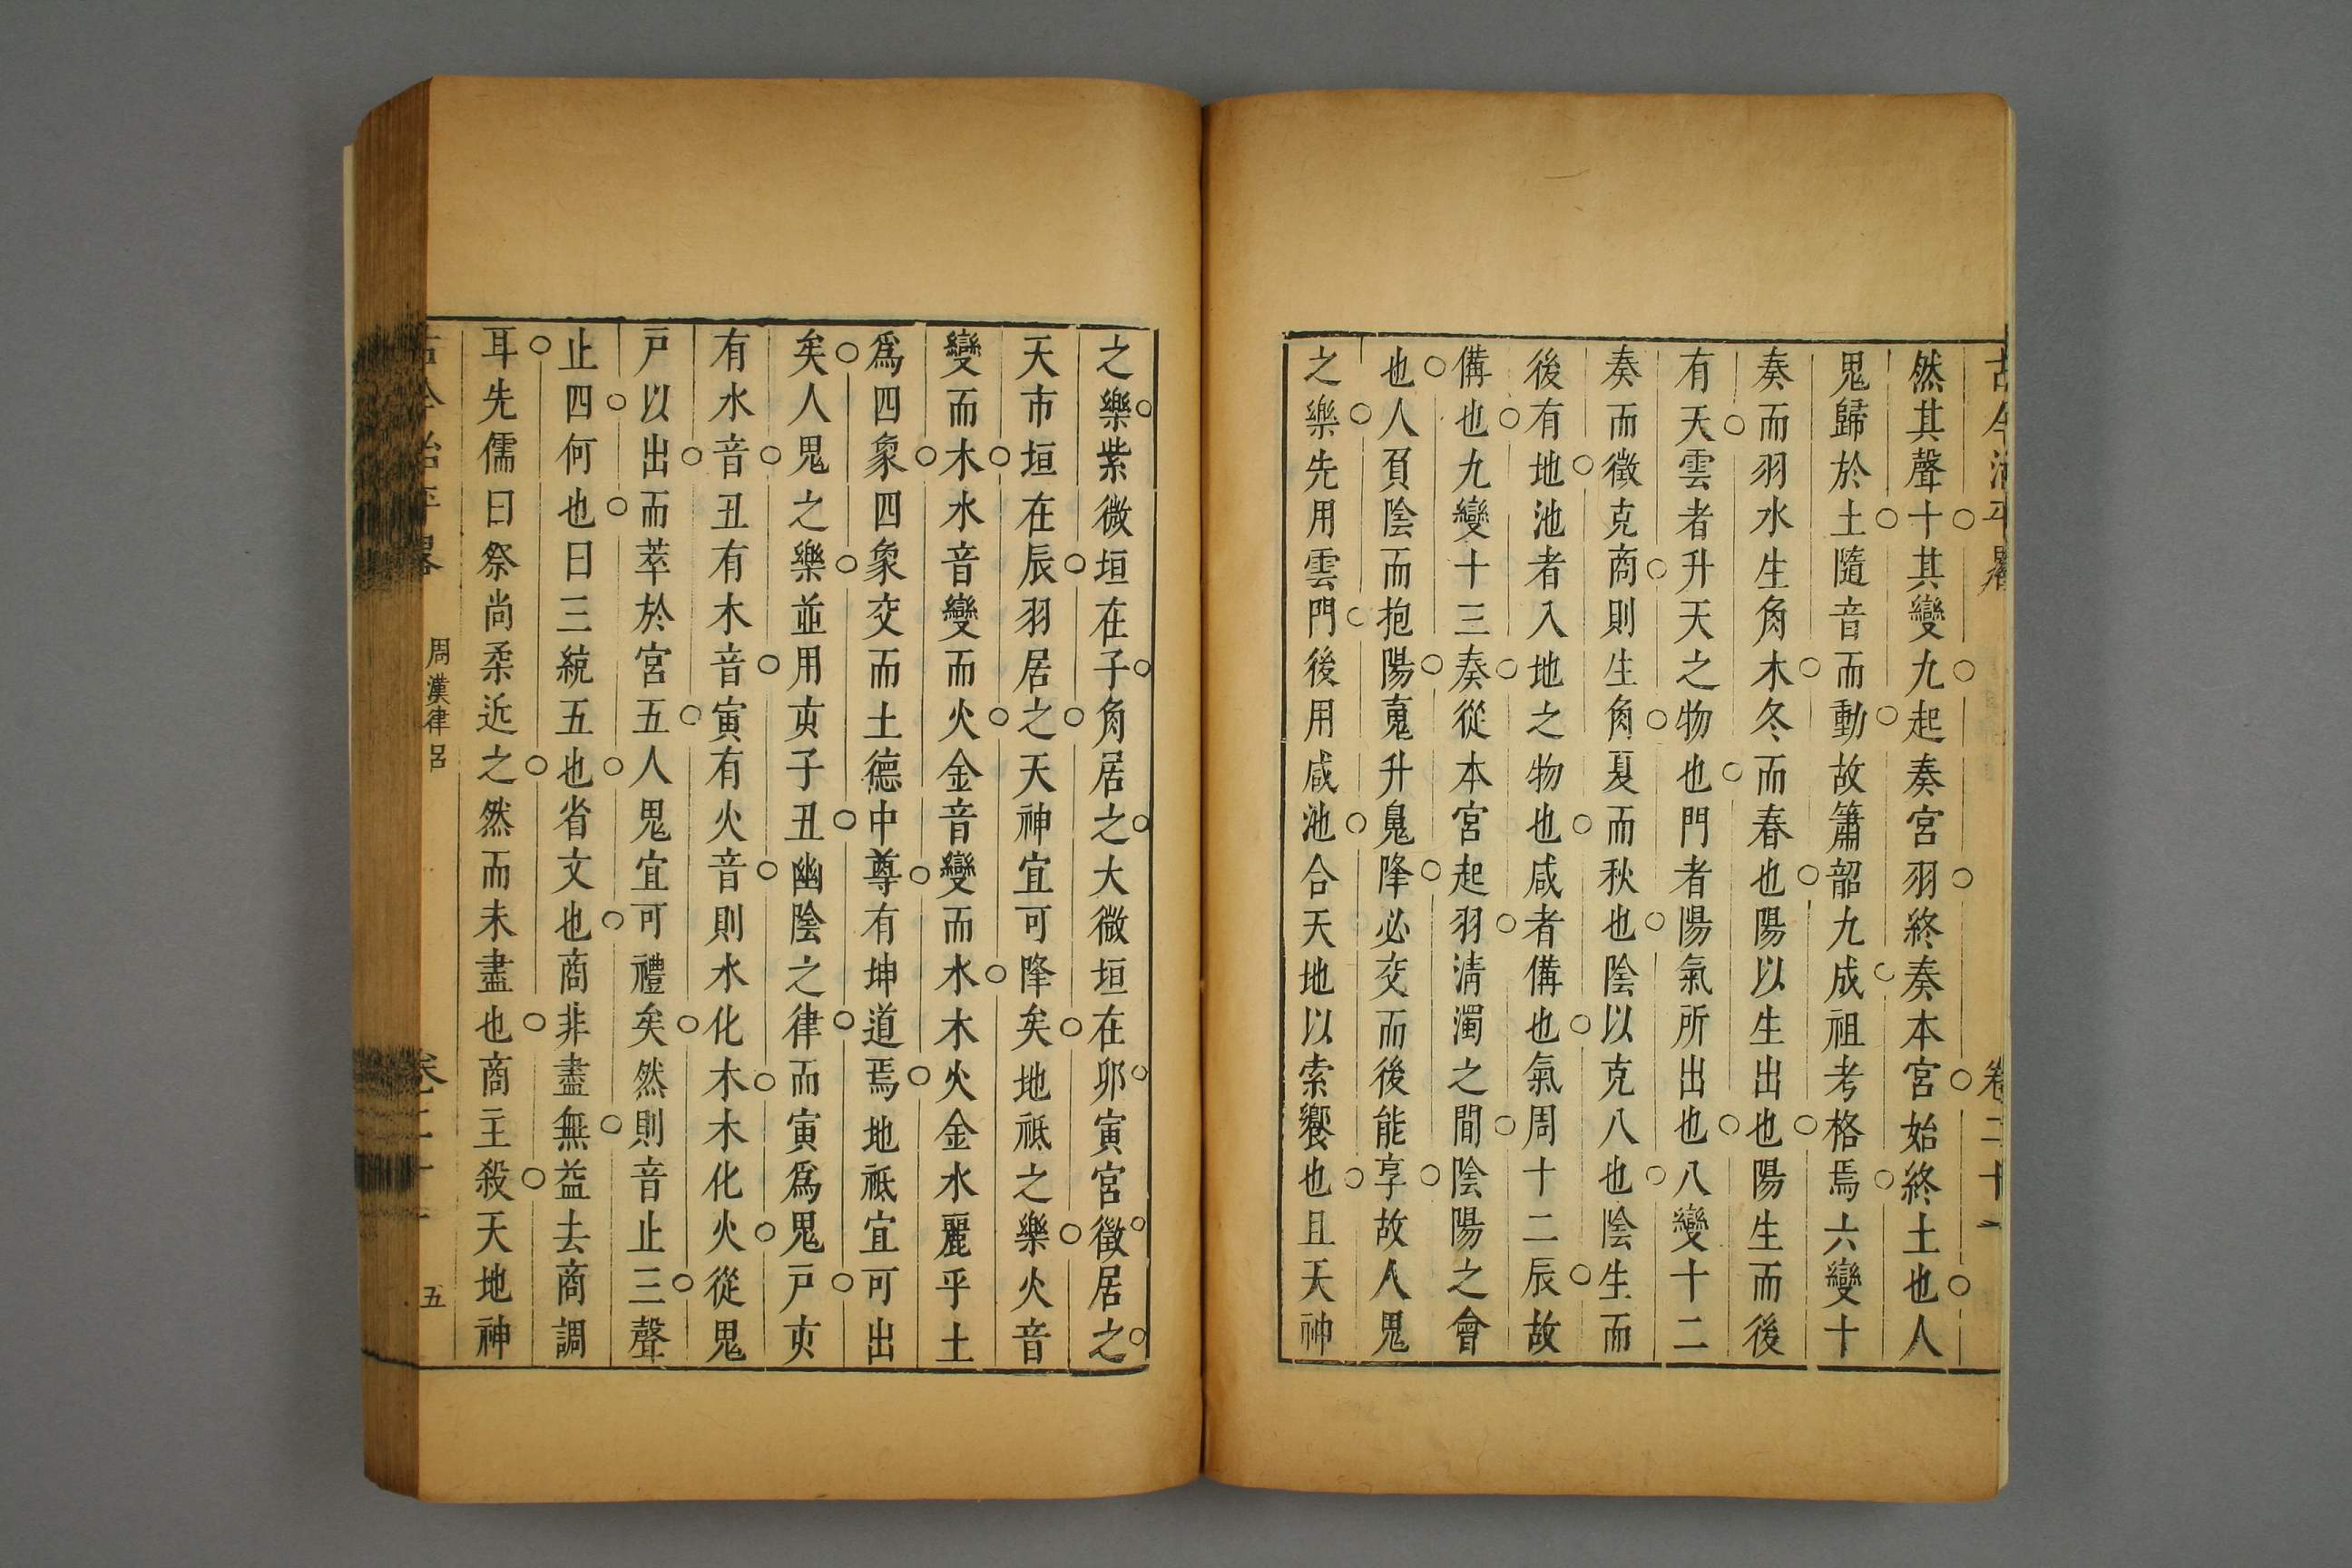 古今治平畧 卷二十一
然其聲十其變九起奏宮羽終奏本宮始終土也人
鬼歸於土隨音而動故簫韶九成祖考格焉六變十
奏而羽水生角木冬而春也陽以生出也陽生而後
有天雲者升天之物也門者陽氣所出也八變十二
奏而徵克商則生角夏而秋也陰以克八也陰生而
後有地池者入地之物也咸者備也氣周十二辰故
備也九變十三奏從本宮起羽清濁之間陰陽之會
也人負陰而抱陽䰟升鬼降必交而後能享故人鬼
之樂先用雲門後用咸池合天地以索饗也且天神
之樂紫微垣在子角居之大微垣在卯寅宮徵居之
天市垣在辰羽居之天神宜可降矣地祇之樂火音
變而木水音變而火金音變而水木火金水麗乎土
爲四象四象交而土德中尊有坤道焉地祇宜可出
矣人鬼之樂並用亥子丑幽陰之律而寅爲鬼戸亥
有水音丑有木音寅有火音則水化木木化火從鬼
戸以出而萃於宮五人鬼宜可禮矣然則音止三聲
止四何也曰三統五也省文也商非盡無益去商調
耳先儒曰祭尚柔近之然而未盡也商主殺天地神
古今治平畧 周漢律呂 卷二十一 五